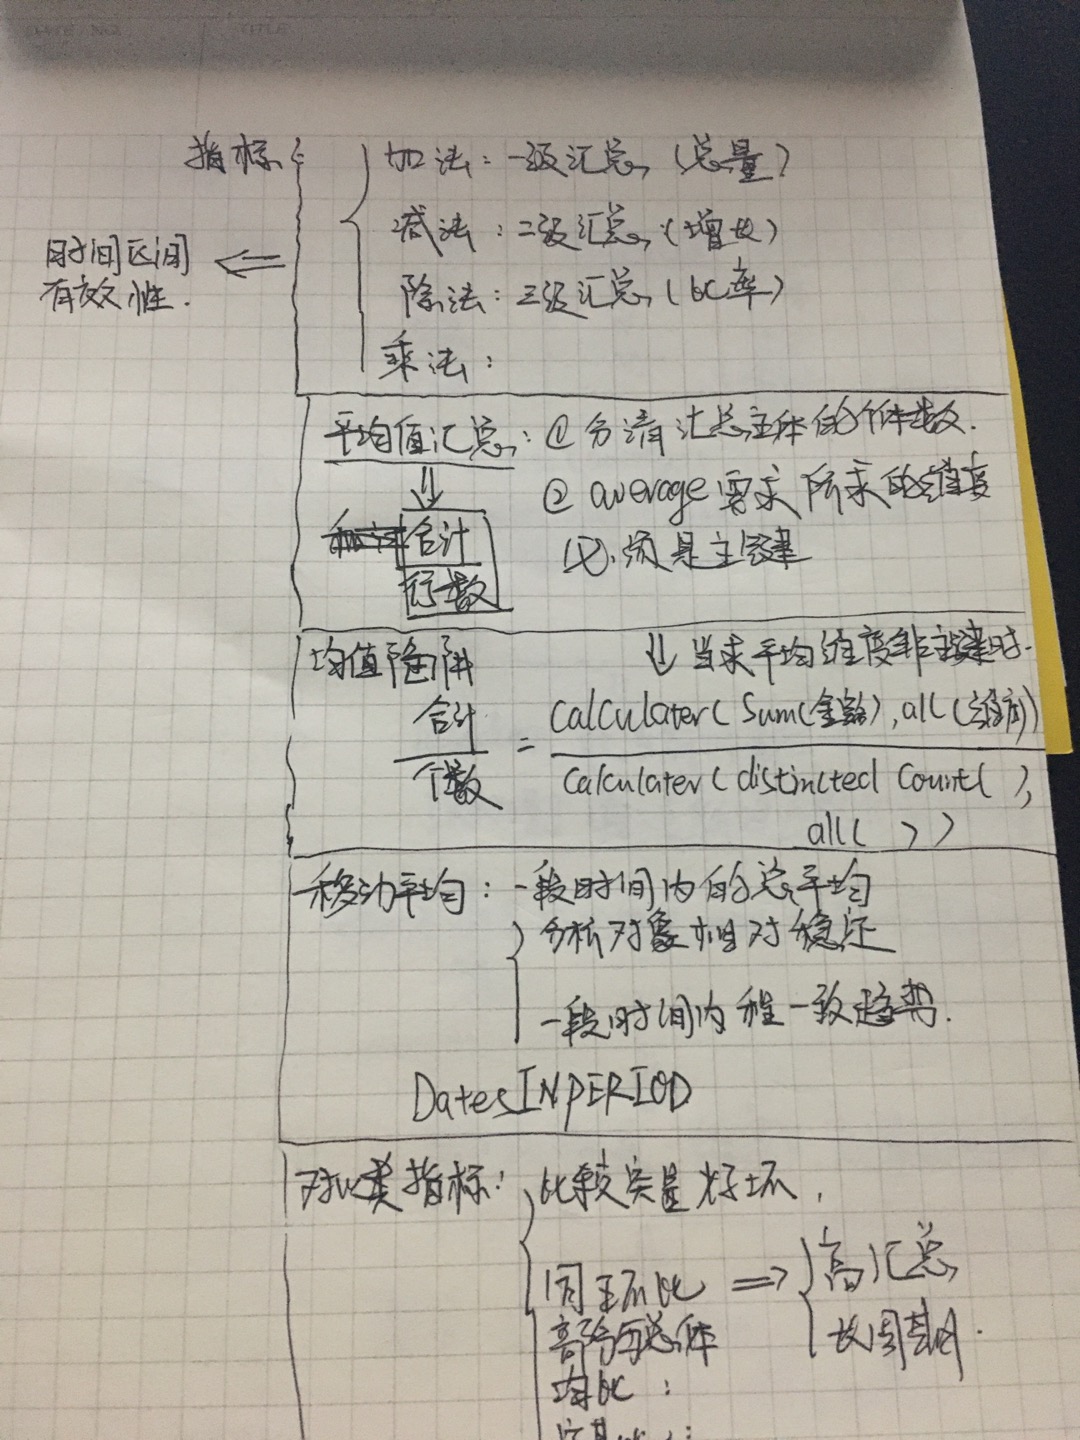 DATE NO. TITLE
指标
加法：一级汇总（总量）
减法：二级汇总（增长）
时间区间
有效性.
除法：三级汇总（比率）
乘法：
平均值汇总：① 分清汇总主体的个体数.
② average要求所求的维度
必须是主键
合计
行数
均值陷阱
当求平均维度非主键时.
合计
个数
=
Calculater(Sum(金额),all(维度))
Calculater(distincted Count( ),
all( ))
移动平均：一段时间内的总平均
分析对象相对稳定
一段时间内程一致趋势.
DatesINPERIOD
对比类指标：比较实量好坏,
同主环比 ⇒ 高汇总
长周期.
部分与总体
均比：